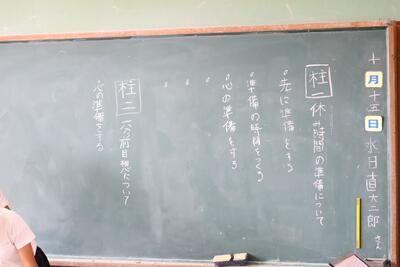 十月十五日 水日直 大二郎 さん
柱一 休み時間の準備について
。先に準備をする
。準備の時間をつくる
。心の準備をする
。
。
。
柱二 一分前目想について
。心の準備をする